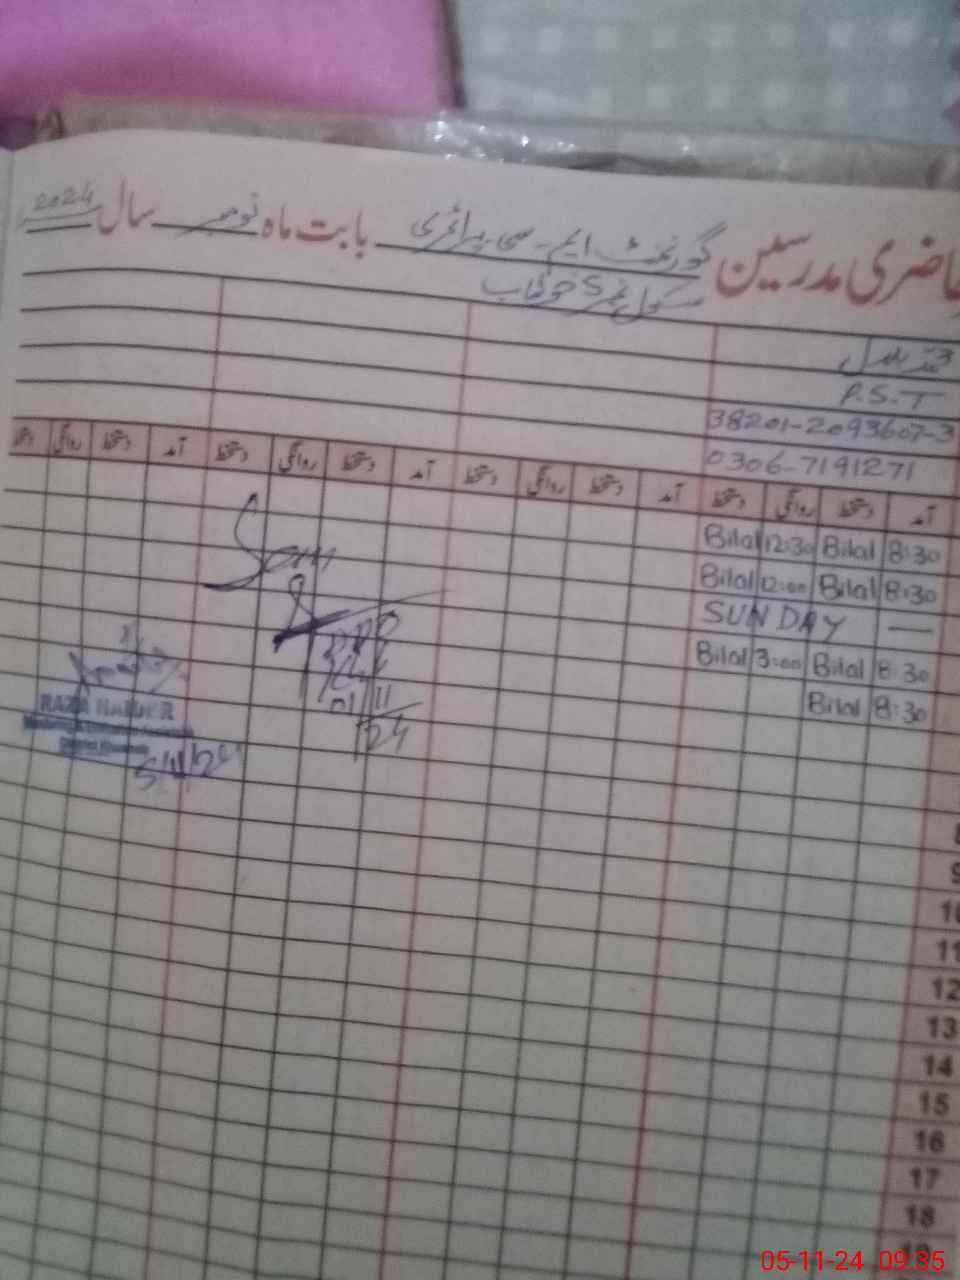 حاضری مدرسین گورنمنٹ ایم۔سی۔پرائمری بابت ماہ نومبر سال 2024
سکول نمبر 5 خوشاب
محمد بلال
P.S.T
38201-2093607-3
0306-7191271
آمد دستخط روانگی دستخط آمد دستخط روانگی دستخط آمد دستخط روانگی دستخط آمد دستخط روانگی دستخط
8:30 Bilal 12:30 Bilal
8:30 Bilal 12:00 Bilal
SUNDAY —
8:30 Bilal 3:00 Bilal
8:30 Bilal
01/11/24
RAZA
5/11/24
8
9
10
11
12
13
14
15
16
17
18
19
05-11-24 09:35